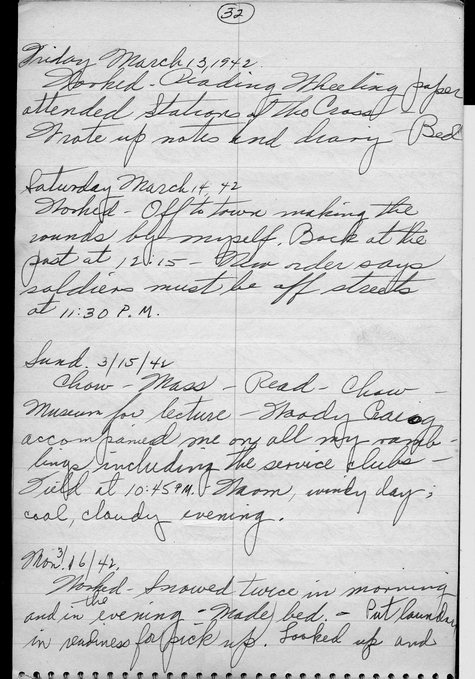 32
Friday March 13, 1942.
Worked - Reading Wheeling paper
attended Stations of the Cross -
Wrote up notes and diary - Bed
Saturday March 14, 42
Worked - Off to town making the
rounds by myself. Back at the
post at 12:15 - New order says
soldiers must be off streets
at 11:30 P.M.
Sund. 3/15/42
Chow - Mass - Read - Chow -
Museum for lecture - Woody Craig
accompanied me on all my ramb-
lings, including the service clubs -
Field at 10:45 P.M. Warm, windy day;
cool, cloudy evening.
Mon. 3/16/42.
Worked - Snowed twice in morning
and in the evening - Made bed. - Put laundry
in readiness for pick up. Looked up and